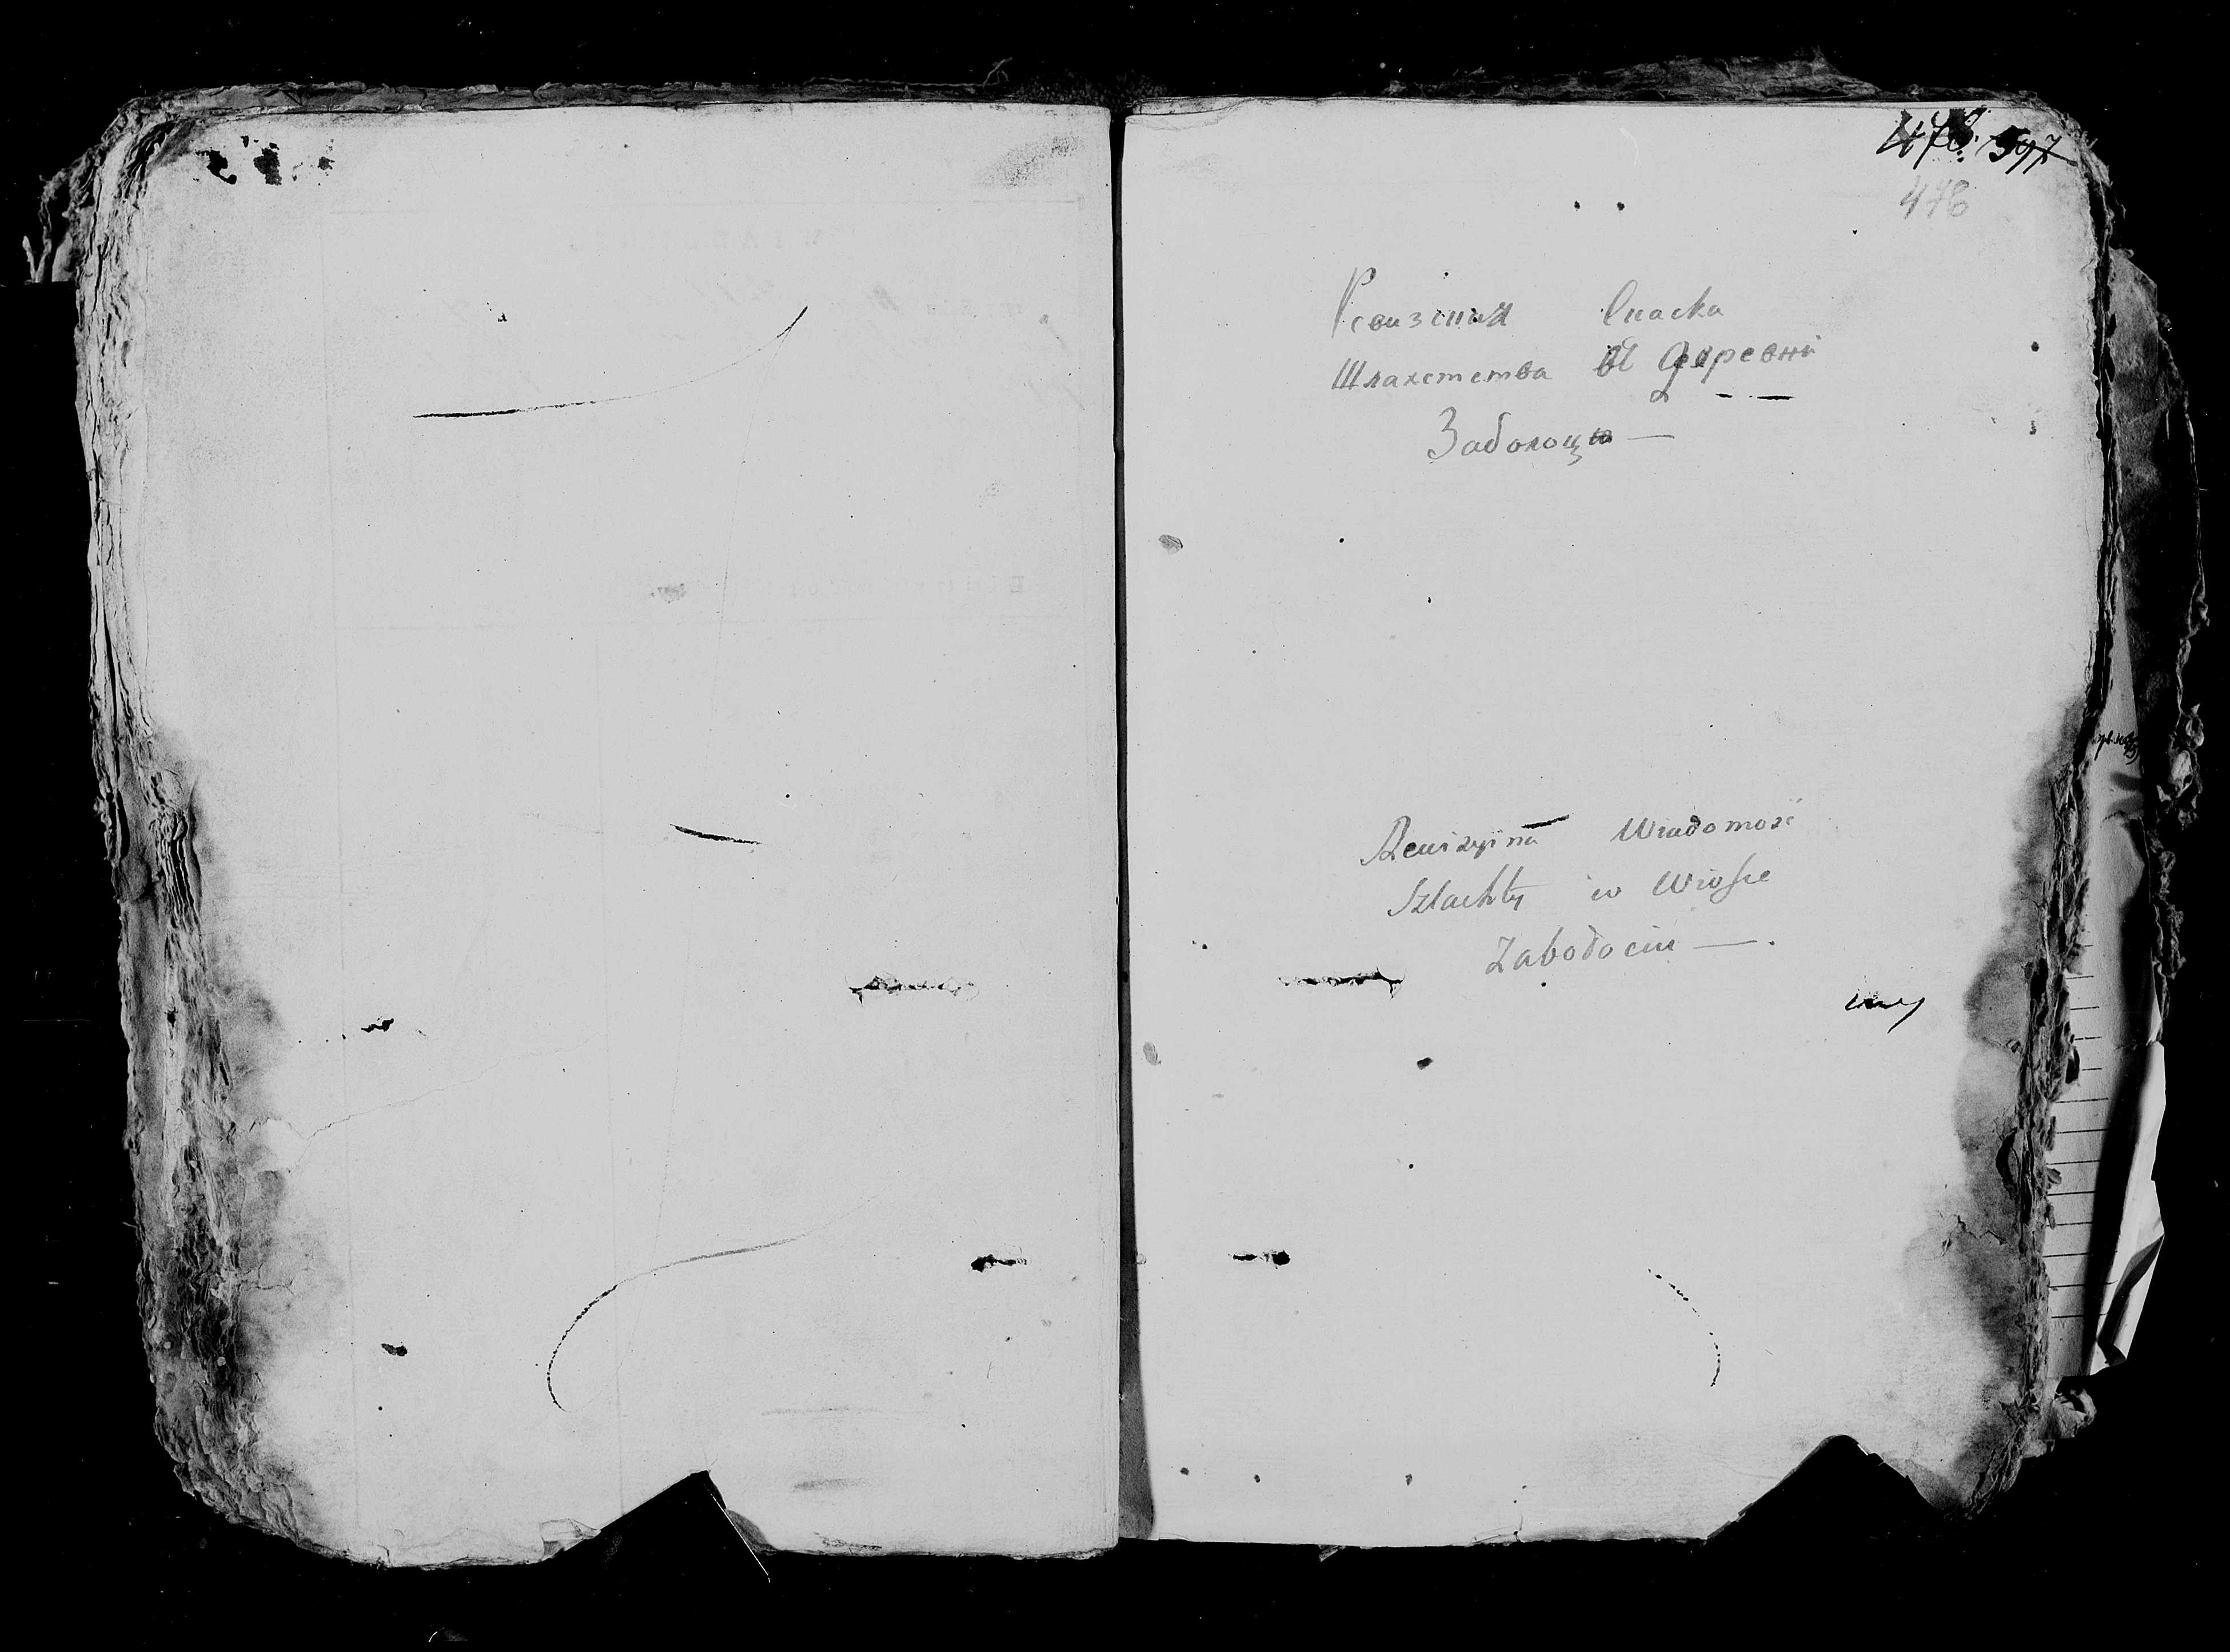 478. 597
478
Ревизсиıя Спаска
Шлахетства въ деревни
Заболоцю —
Rewizyina Wiadomosć
Szlachty w Wiosce
Zabołociu —.